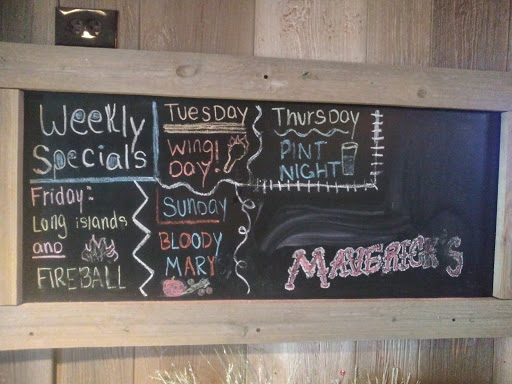 Weekly
Specials
Friday:
Long islands
and
FIREBALL
TUESDAY
WING!
DAY!
SUNDAY
BLOODY
MARY
THURSDAY
PINT
NIGHT
MAVERICK'S